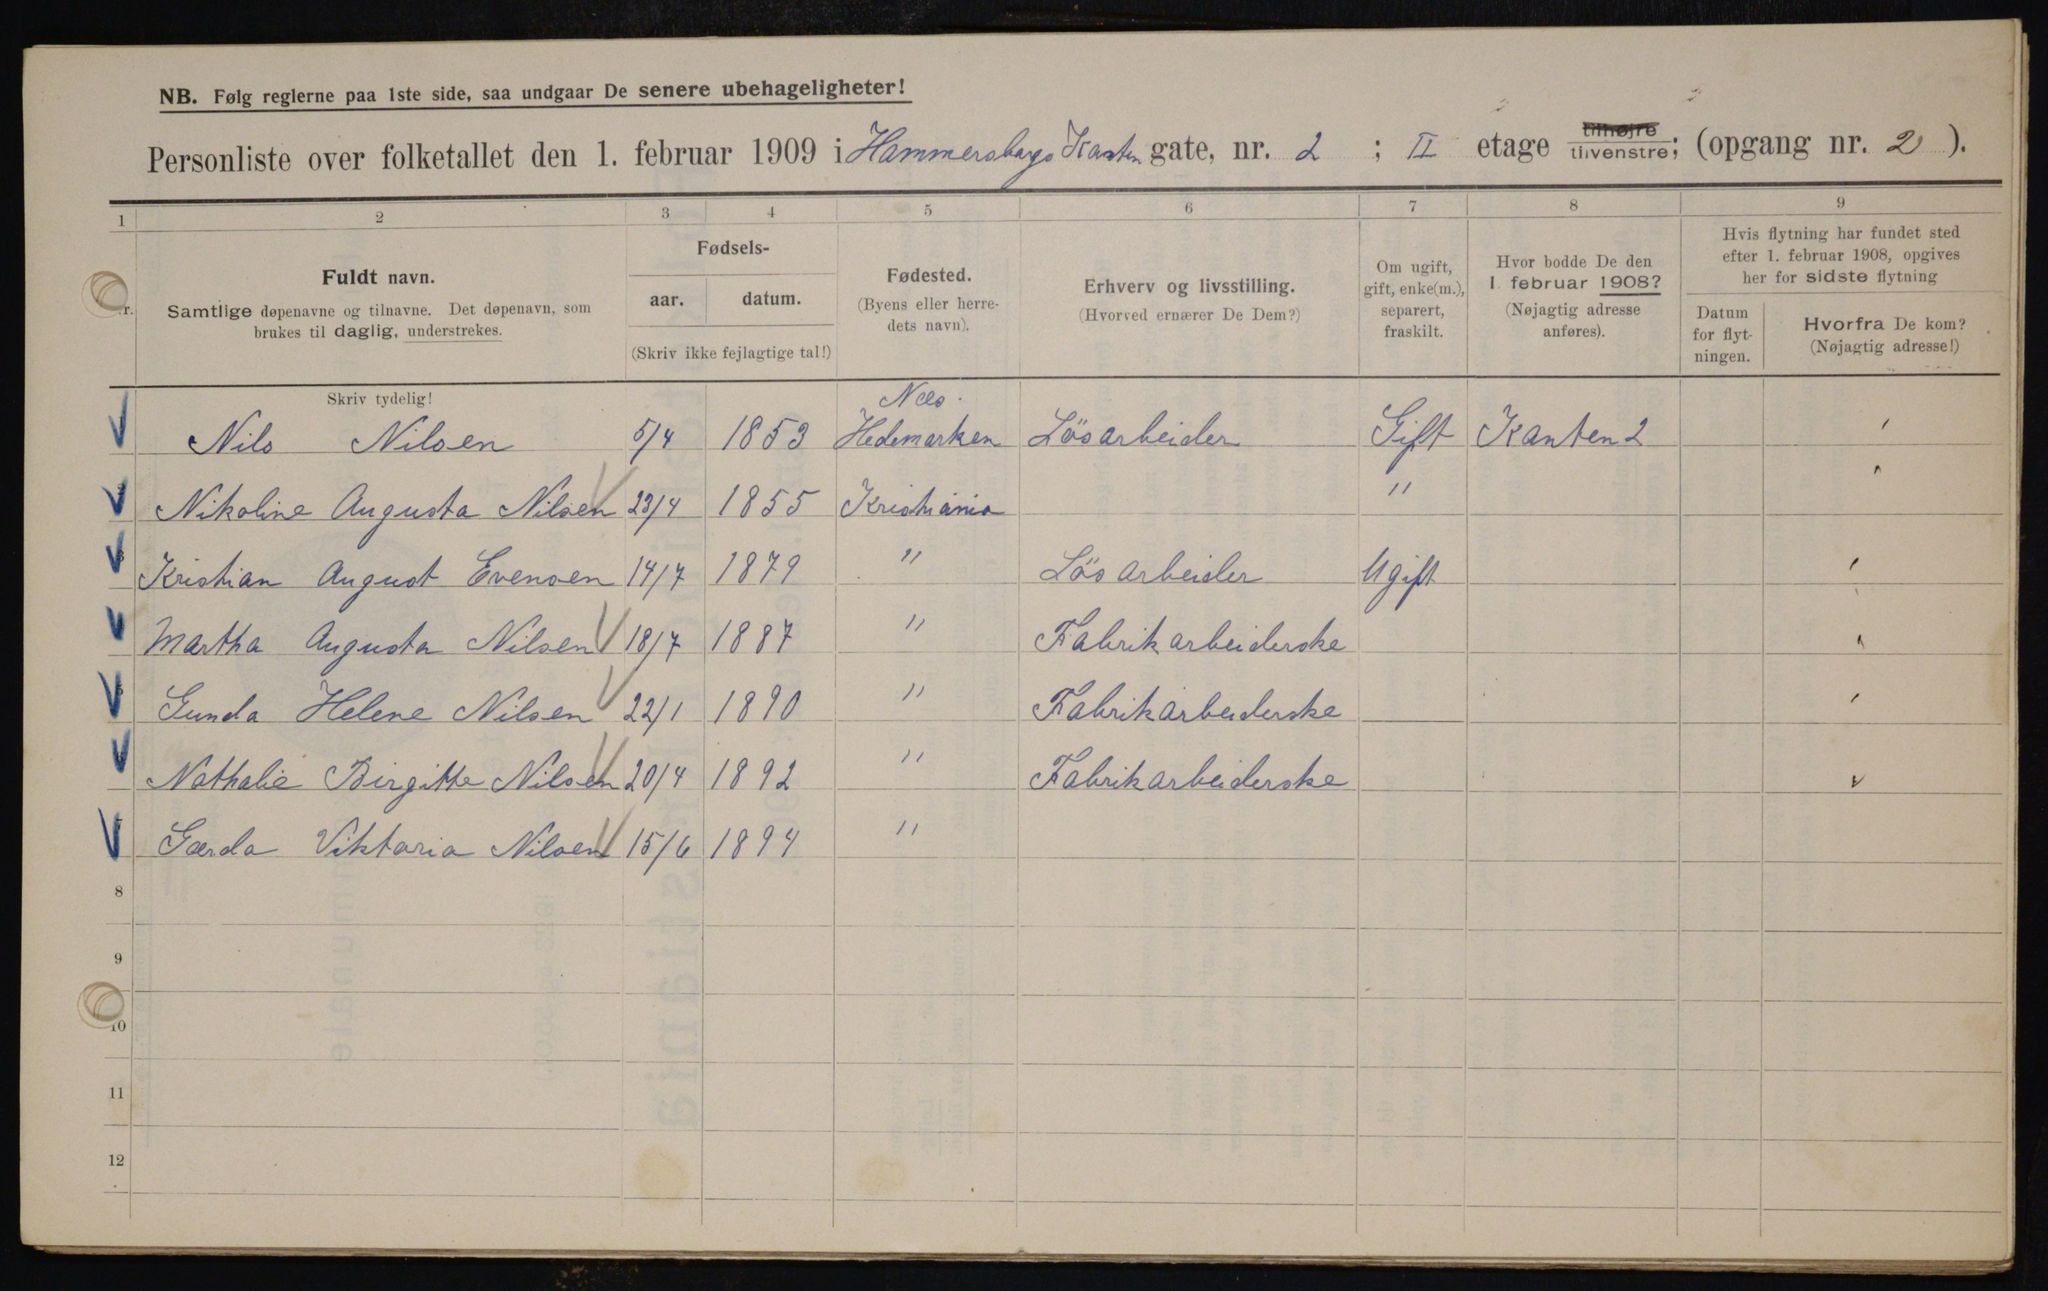 NB. Følg reglerne paa 1ste side, saa undgaar De senere ubehageligheter!
Personliste over folketallet den 1. februar 1909 i Hammersborgs Kanten gate, nr. 2 ; II etage tilhøjre tilvenstre; (opgang nr. 2 ).
1 2 3 4 5 6 7 8 9
Fuldt navn.
Samtlige døpenavne og tilnavne. Det døpenavn, som
brukes til daglig, understrekes.
Fødsels-
aar. datum.
(Skriv ikke fejlagtige tal!)
Fødested.
(Byens eller herre-
dets navn).
Erhverv og livsstilling.
(Hvorved ernærer De Dem?)
Om ugift,
gift, enke(m.),
separert,
fraskilt.
Hvor bodde De den
1. februar 1908?
(Nøjagtig adresse
anføres).
Hvis flytning har fundet sted
efter 1. februar 1908, opgives
her for sidste flytning
Datum
for flyt-
ningen.
Hvorfra De kom?
(Nøjagtig adresse!)
Skriv tydelig!
Næs.
Nils Nilsen 5/4 1853 Hedemarken Lösarbeider Gift Kanten 2
Nikoline Augusta Nilsen 23/4 1855 Kristiania "
Kristian August Evensen 14/7 1879 " Lösarbeider Ugift
Martha Augusta Nilsen 18/7 1887 " Fabrikarbeiderske
Gunda Helene Nilsen 22/1 1890 " Fabrikarbeiderske
Nathalie Birgitte Nilsen 20/4 1892 " Fabrikarbeiderske
Gærda Viktoria Nilsen 15/6 1894 "
8
9
10
11
12